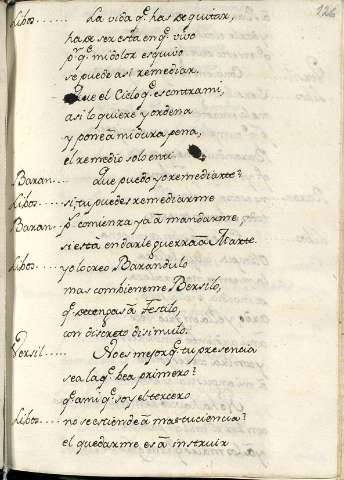 126
Libos..... La vida q̃ has de quitar,
ha de ser esta en q̃ vivo
p.r q̃ mi dolor esquivo
se puede asi remediar.
Que el Cielo q̃ es contra mi,
asi lo quiere y ordena
y pone â mi dura pena,
el remedio solo en ti
Baran..... Que puedo yo remediarte?
Libos..... si, tu puedes remediarme
Baran.. p.s comienza ya â mandarme,
si està en darle guerra â Marte.
Libos.... yo lo creo Barândulo
mas combieneme Bersilo,
q̃ detengas â Testilo,
con discreto disimulo.
Versil..... No es mejor q̃ tu presencia
sea la q̃ bea primero?
q̃ ami q̃ soy el tercero
Libos.... no se estiende â mas tu ciencia?
el quedarme es â instruir